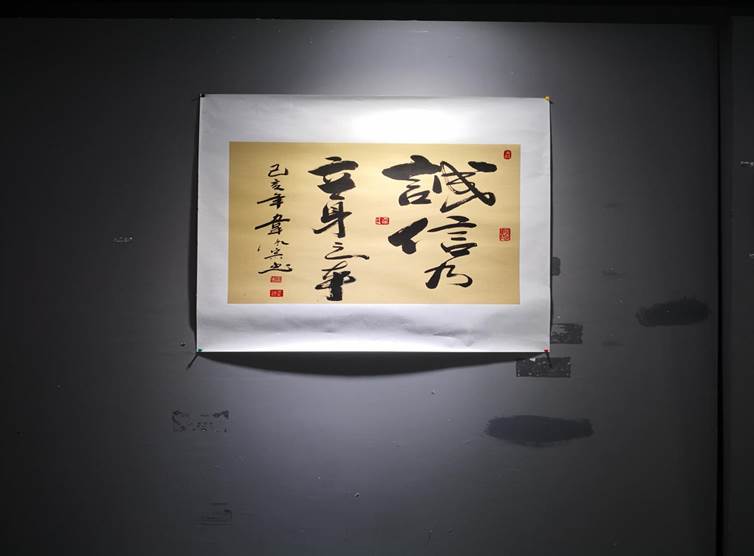 誠信乃
立身之本
己亥年韋书